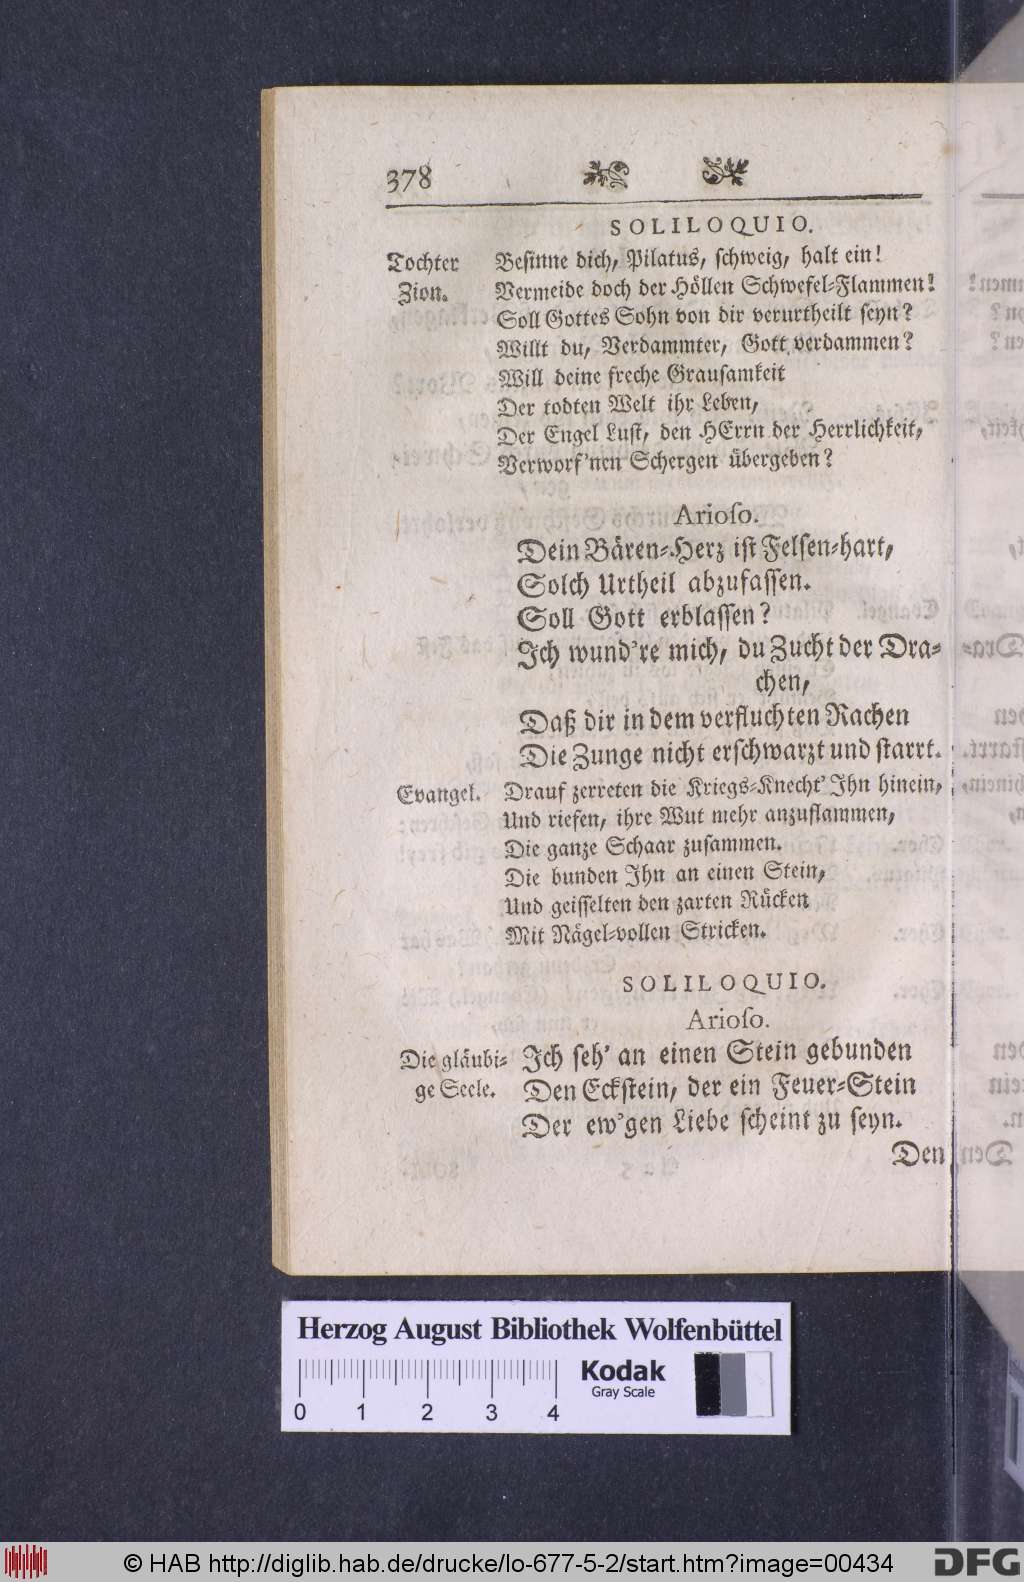 378
SOLILOQUIO.
Tochter Zion.
Besinne dich, Pilatus, schweig, halt ein!
Vermeide doch der Höllen Schwefel-Flammen!
Soll Gottes Sohn von dir verurtheilt seyn?
Willt du, Verdammter, Gott verdammen?
Will deine freche Grausamkeit
Der todten Welt ihr Leben,
Der Engel Lust, den HErrn der Herrlichkeit,
Verworf'nen Schergen übergeben?
Arioso.
Dein Bären-Herz ist Felsen-hart,
Solch Urtheil abzufassen.
Soll Gott erblassen?
Ich wund're mich, du Zucht der Dra-
chen,
Daß dir in dem verfluchten Rachen
Die Zunge nicht erschwarzt und starrt.
Evangel. Drauf zerreten die Kriegs-Knecht' Ihn hinein,
Und riefen, ihre Wut mehr anzuflammen,
Die ganze Schaar zusammen.
Die bunden Ihn an einen Stein,
Und geisselten den zarten Rücken
Mit Nägel-vollen Stricken.
SOLILOQUIO.
Arioso.
Die gläubi-
ge Seele.
Ich seh' an einen Stein gebunden
Den Eckstein, der ein Feuer-Stein
Der ew'gen Liebe scheint zu seyn.
Den
Herzog August Bibliothek Wolfenbüttel
Kodak
Gray Scale
0 1 2 3 4
© HAB http://diglib.hab.de/drucke/lo-677-5-2/start.htm?image=00434
DFG